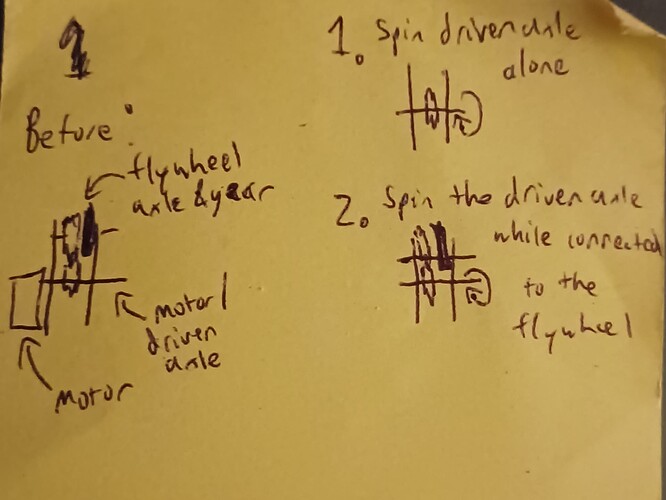 1
Before:
flywheel
axle & gear
motor/
driven
axle
motor
1. Spin driven axle
alone
2. Spin the driven axle
while connected
to the
flywheel